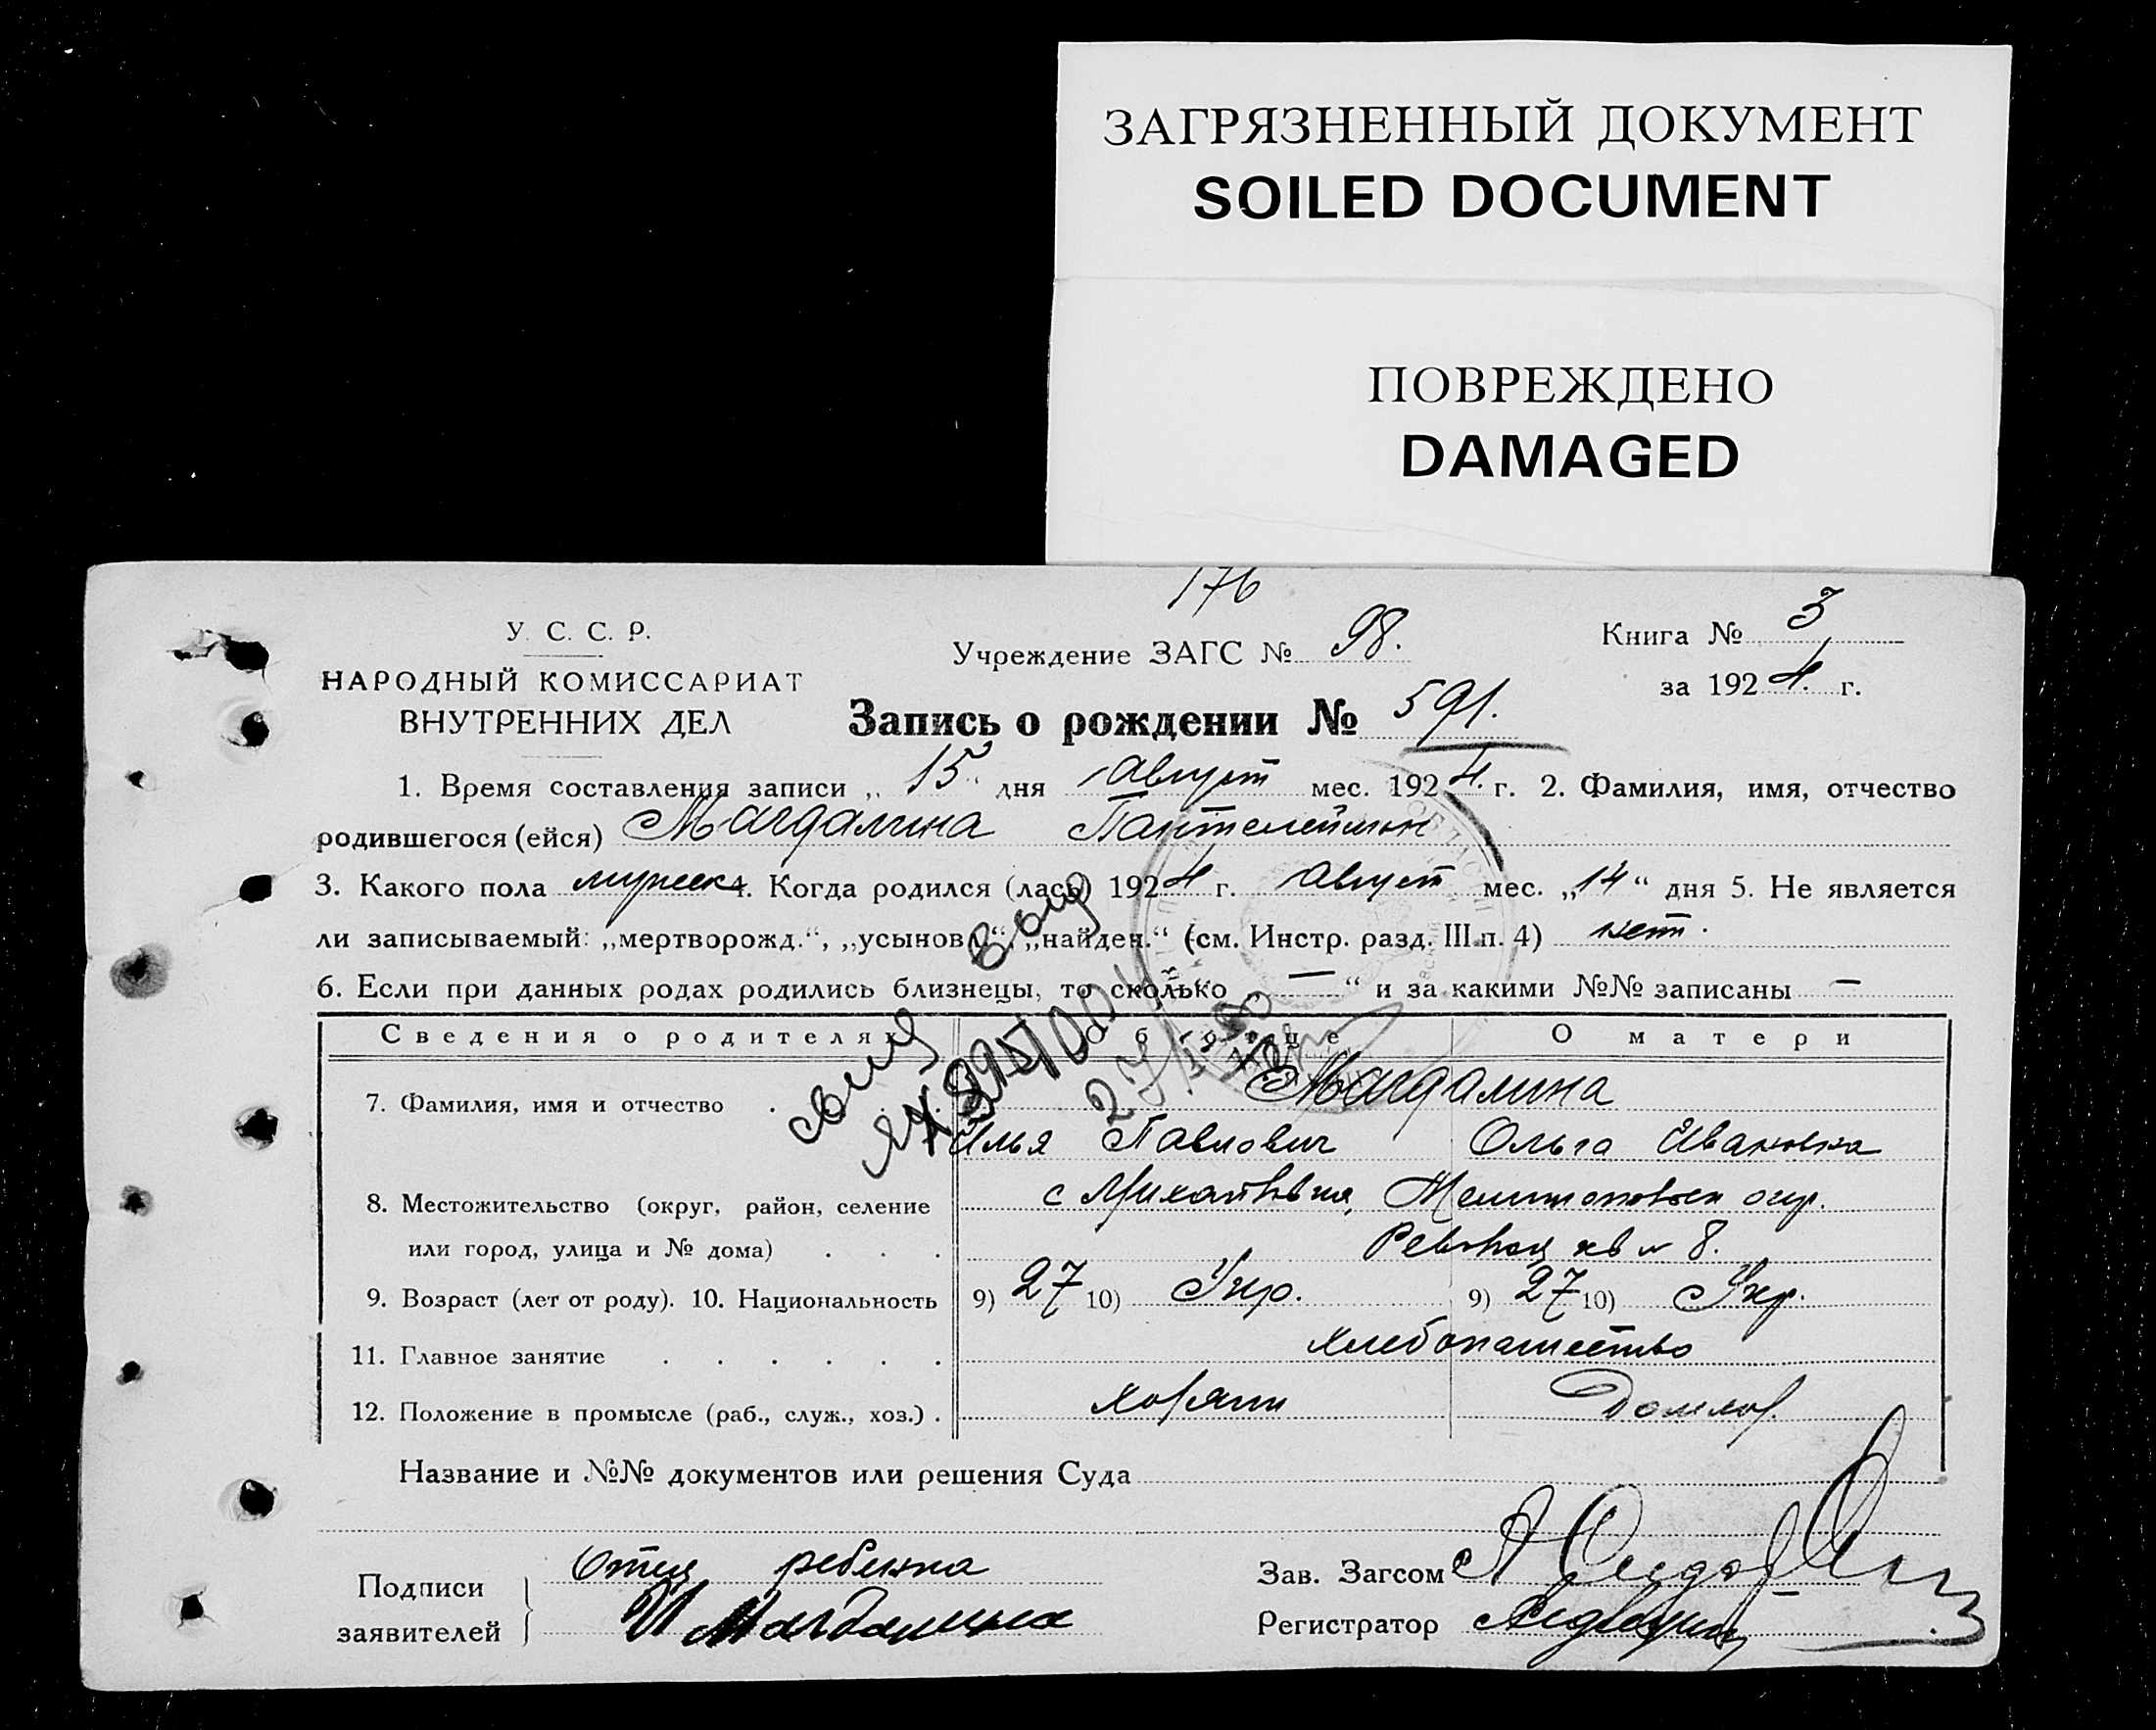 ЗАГРЯЗНЕННЫЙ ДОКУМЕНТ
SOILED DOCUMENT
ПОВРЕЖДЕНО
DAMAGED
176
У. С. С. Р.
НАРОДНЫЙ КОМИССАРИАТ
ВНУТРЕННИХ ДЕЛ
Учреждение ЗАГС № 98.
Книга № 3
за 1924. г.
Запись о рождении № 591.
1. Время составления записи „ 15 “ дня Август мес. 1924. г. 2. Фамилия, имя, отчество
родившегося (ейся) Магдалина Пантелеймон
3. Какого пола мужск 4. Когда родился (лась) 1924 г. Август мес. „14“ дня 5. Не является
ли записываемый: „мертворожд.“, „усыновл.“, „найден.“ (см. Инстр. разд. III п. 4) нет.
6. Если при данных родах родились близнецы, то сколько „ — “ и за какими №№ записаны —
Сведения о родителях Об отце О матери
7. Фамилия, имя и отчество . Магдалина
Илья Павлович Ольга Ивановна
8. Местожительство (округ, район, селение с Михайловка,
или город, улица и № дома) . . . кв № 8.
9. Возраст (лет от роду). 10. Национальность 9) 27 10) Укр. 9) 27 10) Укр.
11. Главное занятие . . . . . . хлебопашество
12. Положение в промысле (раб., служ., хоз.) . хозяин Домхоз.
Название и №№ документов или решения Суда
Подписи заявителей
Отец ребенка
И Магдалина
Зав. Загсом
Регистратор